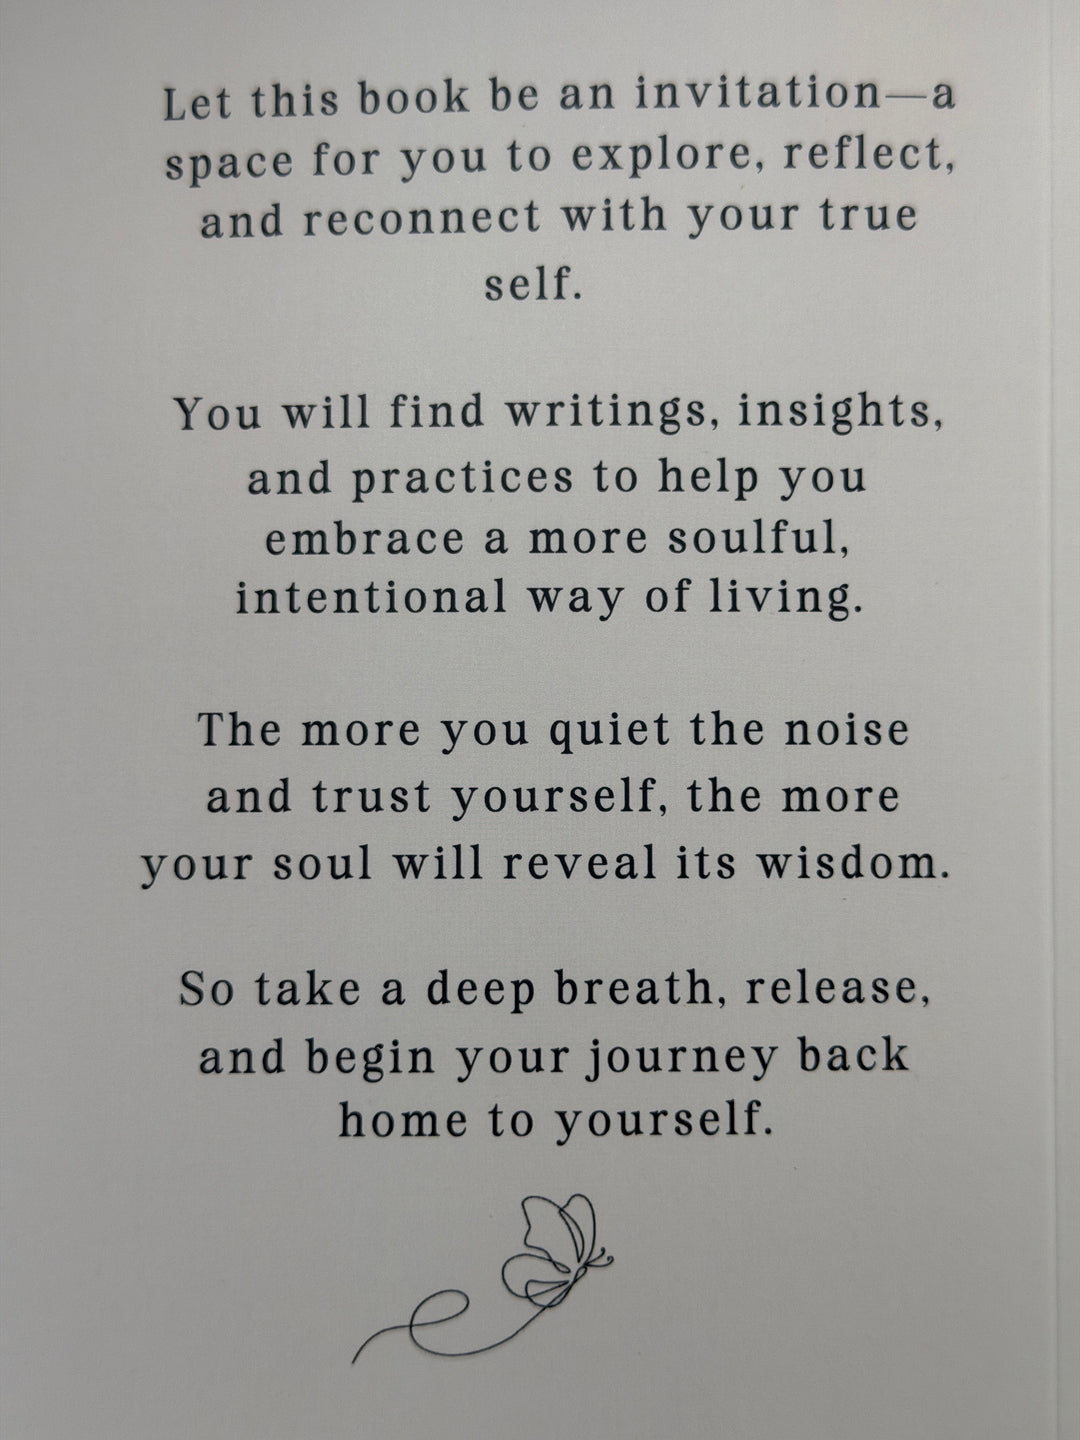 Let this book be an invitation—a
space for you to explore, reflect,
and reconnect with your true
self.
You will find writings, insights,
and practices to help you
embrace a more soulful,
intentional way of living.
The more you quiet the noise
and trust yourself, the more
your soul will reveal its wisdom.
So take a deep breath, release,
and begin your journey back
home to yourself.